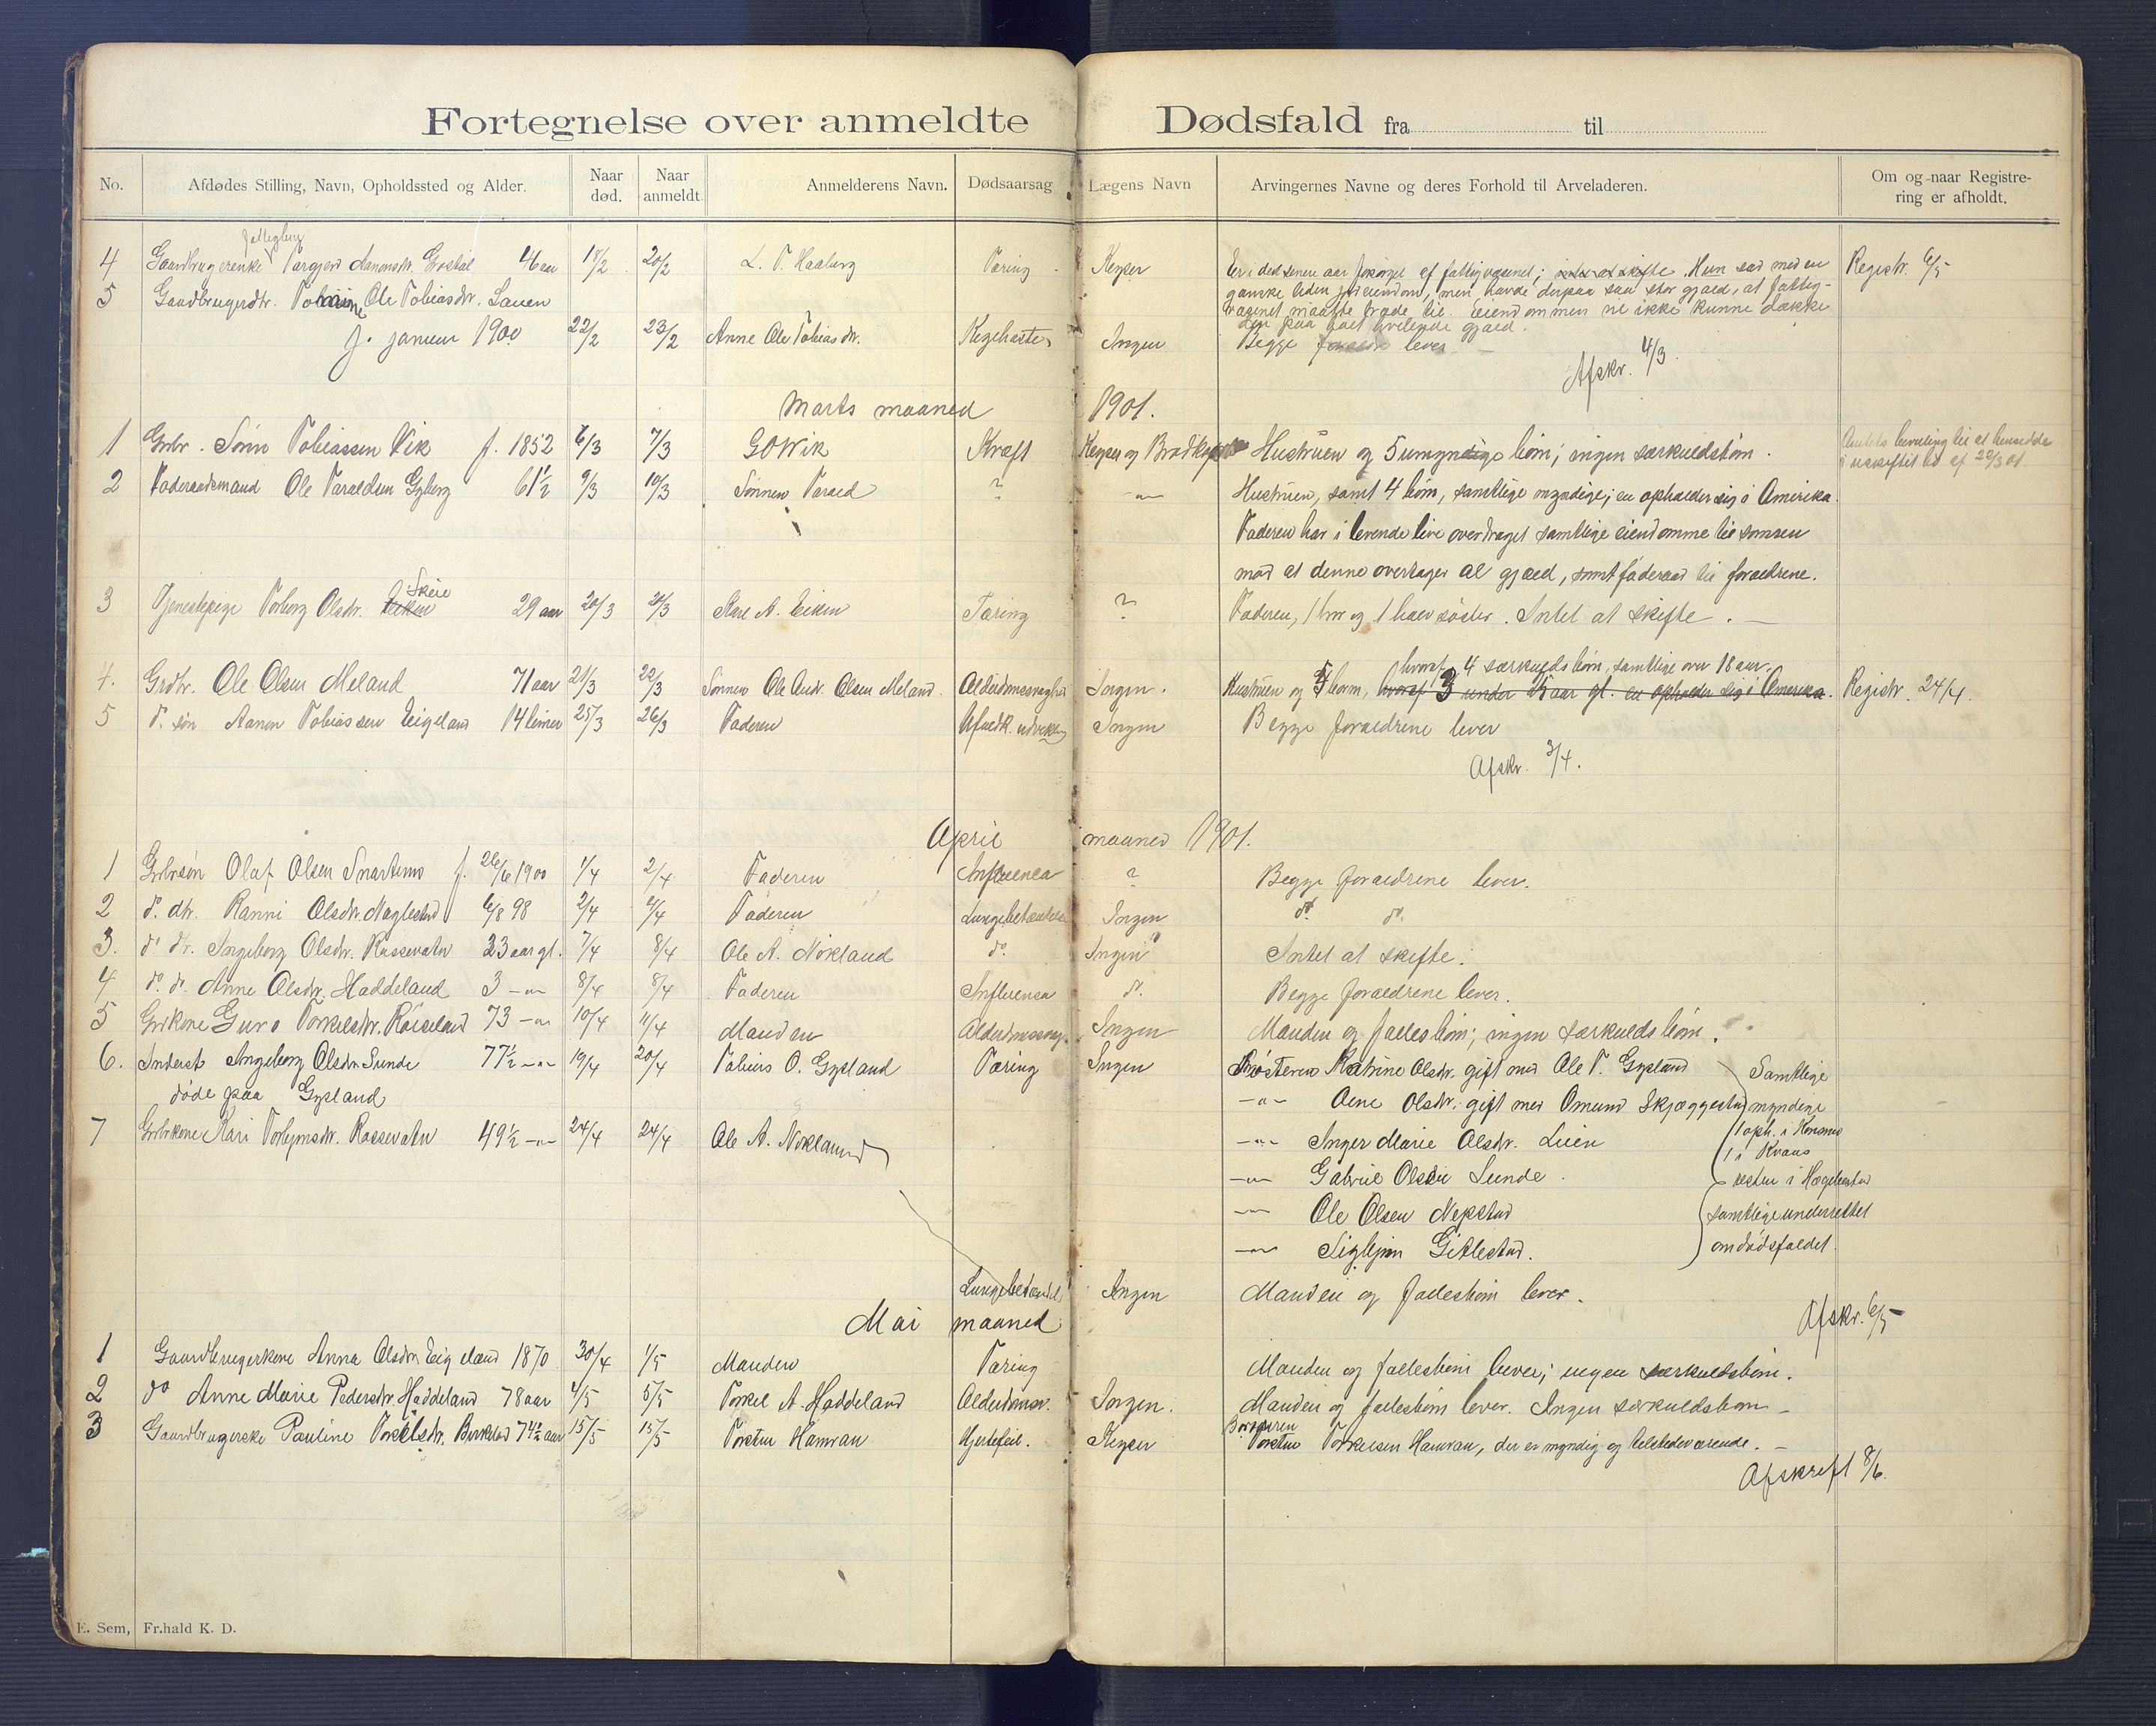 Fortegnelse over anmeldte Dødsfald fra til
No. Afdødes Stilling, Navn, Opholdssted og Alder. Naar død. Naar anmeldt. Anmelderens Navn. Dødsaarsag Lægens Navn Arvingernes Navne og deres Forhold til Arveladeren. Om og naar Registrering er afholdt.
fattiglem
4 Gaardbrugerenke Targjerd Aanonsdtr. 46 aar 18/2 20/2 L. T. Haaberg Tæring Keyser Er i det senere aar forsørget af fattigvæsenet; intet at skifte. Hun sad med en Registr. 6/5
ganske liden jordeiendom, men havde derpaa saa stor gjæld, at fattig-
væsenet maatte træde til. Eiendommen vil ikke kunne dække
den paa hvilende gjæld.
5 Gaardbrugerdtr. Ole Tobiasdtr. Lauen
f. januar 1900 22/2 23/2 Anne Ole Tobiasdtr. Kighoste Ingen Begge forældre lever
Afskr. 4/3.
Marts maaned 1901.
1 Grbr. Sørin Tobiassen Vik f. 1852 6/3 7/3 G O Wik Kræft Keyser og Hustruen og 5 umyndige børn; ingen særkuldsbørn.
2 Føderaadsmand Ole Taraldsen Gyberg 61½ 9/3 10/3 Sønnen Tarald ? -"- Hustruen, samt 4 børn, samtlige myndige; en opholder sig i Amerika.
Faderen har i levende live overdraget samtlige eiendomme til sønnen
mod at denne overtager al gjæld, samt føderaad til forældrene.
3 Tjenestepige Torborg Olsdtr. Eiken Skeie 29 aar 20/3 20/3 Karl A. Eiken Tæring ? Faderen, 1 bror og 1 halvsøster. Intet at skifte.
hvoraf 4 særkuldsbørn, samtlige over 18 aar.
4. Grdbr. Ole Olsen Meland 71 aar 21/3 22/3 Sønnen Ole Andr. Olsen Meland. Alderdomssvaghed Ingen. Hustruen og 5 børn, hvoraf 3 under 15 aar gl. en opholder sig i Amerika. Registr. 24/4.
5 d. søn Aanen Tobiassen Eigeland 14 timer 25/3 26/3 Faderen Ufuldk. udvikling Ingen Begge forældrene lever
Afskr. 3/4.
April maaned 1901.
1 Grbrsøn Olaf Olsen Snartemo f. 26/6 1900 1/4 2/4 Faderen Influensa ? Begge forældrene lever.
2 do. dtr. Ranni Olsdtr. Naglestad 6/8 98 2/4 4/4 Faderen Lungebetændelse Ingen do. do.
3. do dtr. Ingeborg Olsdtr. Røssevatn 23 aar gl. 7/4 8/4 Ole A. Nökland do. Ingen Intet at skifte.
4 do. do. Anne Olsdtr. Haddeland 3 -"- 8/4 8/4 Faderen Influensa do. Begge forældrene lever.
5 Grbrkone Guro Torkelsdtr. Røiseland 73 -"- 10/4 11/4 Manden Alderdomssvag. Ingen Manden og fællesbørn; ingen særkuldsbørn.
6. Inderst Ingeborg Olsdtr. Sunde 77½ -"- 19/4 20/4 Tobias O. Gysland Tæring Ingen Søsteren Katrine Olsdtr. gift med Ole T. Gysland Samtlige
døde paa Gysland -"- Olsdtr. gift med Omund Skjæggestad myndige
7 Grbrkone Kari Torbjørnsdtr. Røssevatn 49½ -"- 24/4 24/4 Ole A. Nökland -"- Inger Marie Olsdtr. Lien 1 oph. i Konsmo
1 i Kvaas
-"- Gabriel Olsen Sunde. resten i Hægebostad
-"- Ole Olsen Nepstad samtlige underrettet
-"- Sigbjørn Gitlestad. om dødsfaldet.
Lungebetændelse Ingen Manden og fællesbørn lever.
Afskr. 6/5
Mai maaned
1 Gaardbrugerkone Anna Olsdtr. Eigeland 1870 30/4 1/5 Manden Tæring Manden og fællesbørn lever; ingen særkuldsbørn.
2 do Anne Marie Pedersdtr. Haddeland 78 aar 4/5 5/5 Torkel A. Haddeland Alderdomssv. Ingen. Manden og fællesbørn lever. Ingen særkuldsbørn
3 Gaardbrugerske Pauline Torkelsdtr. Birkeland 74½ aar 15/5 15/5 Torsten Hamran Hjertefeil. Keyser Broderen Torsten Torkelsen Hamran, der er myndig og tilstedeværende.
Afskrift 8/6.
E. Sem, Fr.hald K. D.